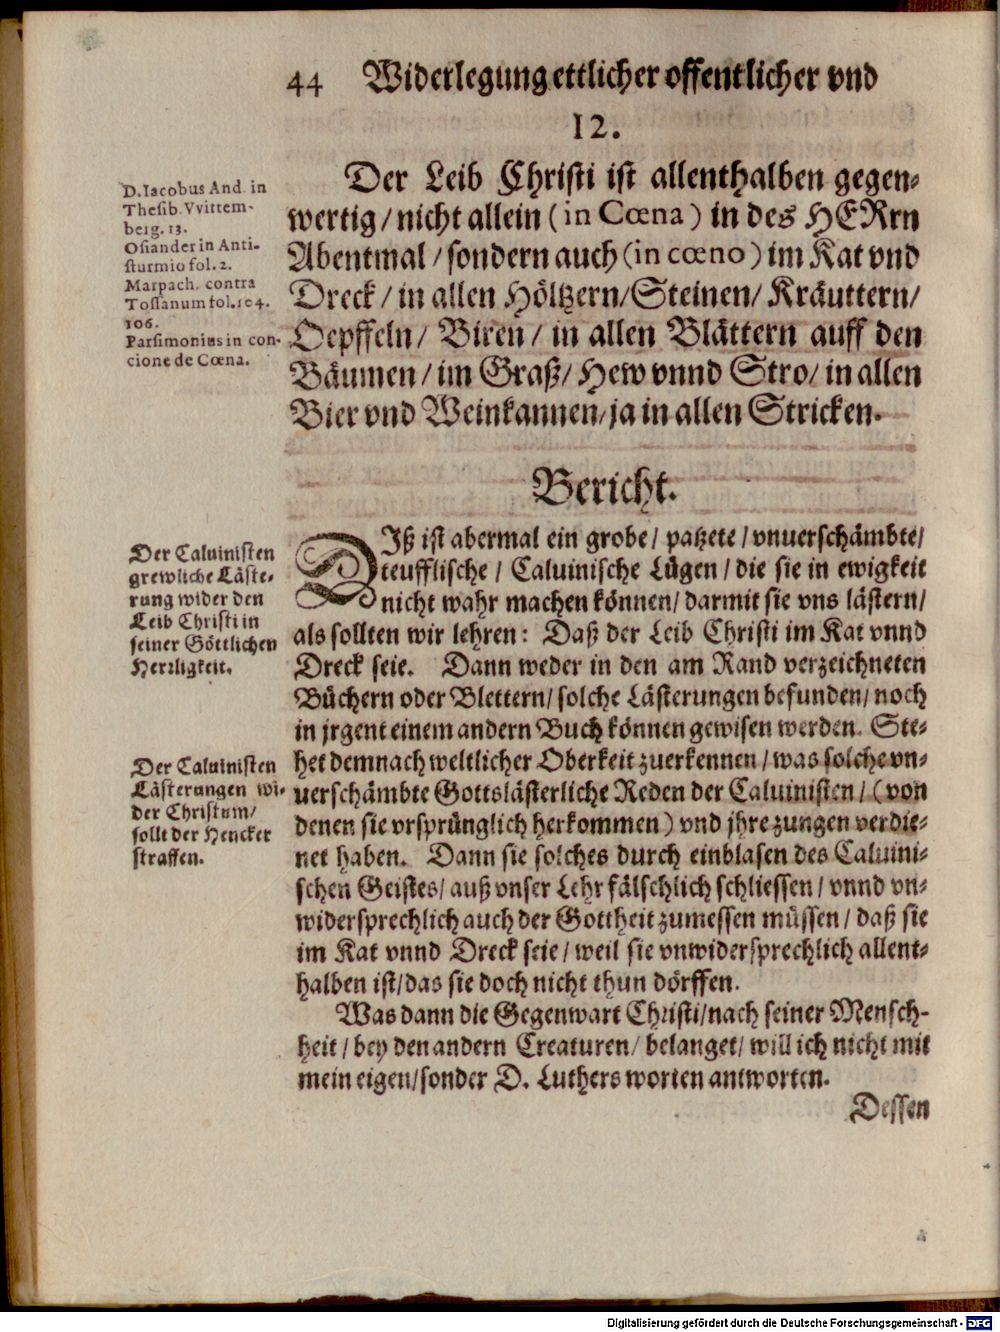 44 Widerlegung ettlicher offentlicher vnd
12.
Der Leib Christi ist allenthalben gegen-
wertig / nicht allein (in Cœna) in des HERrn
Abentmal / sondern auch (in cœno) im Kat vnd
Dreck / in allen Höltzern / Steinen / Kräuttern /
Oepffeln / Biren / in allen Blättern auff den
Bäumen / im Graß / Hew vnnd Stro / in allen
Bier vnd Weinkannen / ja in allen Stricken.
D. Iacobus And. in
Thesib. VVittem-
berg. 13.
Osiander in Anti-
sturmio fol. 2.
Marpach. contra
Tossanum fol. 104.
106.
Parsimonius in con-
cione de Cœna.
Bericht.
DIß ist abermal ein grobe / patzete / vnuerschämbte /
teufflische / Caluinische Lügen / die sie in ewigkeit
nicht wahr machen können / darmit sie vns lästern /
als sollten wir lehren: Daß der Leib Christi im Kat vnnd
Dreck seie. Dann weder in den am Rand verzeichneten
Büchern oder Blettern / solche Lästerungen befunden / noch
in jrgent einem andern Buch können gewisen werden. Ste-
het demnach weltlicher Oberkeit zuerkennen / was solche vn-
uerschämbte Gottslästerliche Reden der Caluinisten / (von
denen sie vrsprünglich herkommen) vnd jhre zungen verdie-
net haben. Dann sie solches durch einblasen des Caluini-
schen Geistes / auß vnser Lehr fälschlich schliessen / vnnd vn-
widersprechlich auch der Gottheit zumessen müssen / daß sie
im Kat vnnd Dreck seie / weil sie vnwidersprechlich allent-
halben ist / das sie doch nicht thun dörffen.
Der Caluinisten
grewliche Läste-
rung wider den
Leib Christi in
seiner Göttlichen
Herrligkeit.
Der Caluinisten
Lästerungen wi-
der Christum /
sollt der Hencker
straffen.
Was dann die Gegenwart Christi / nach seiner Mensch-
heit / bey den andern Creaturen / belanget / will ich nicht mit
mein eigen / sonder D. Luthers worten antworten.
Dessen
Digitalisierung gefördert durch die Deutsche Forschungsgemeinschaft - DFG